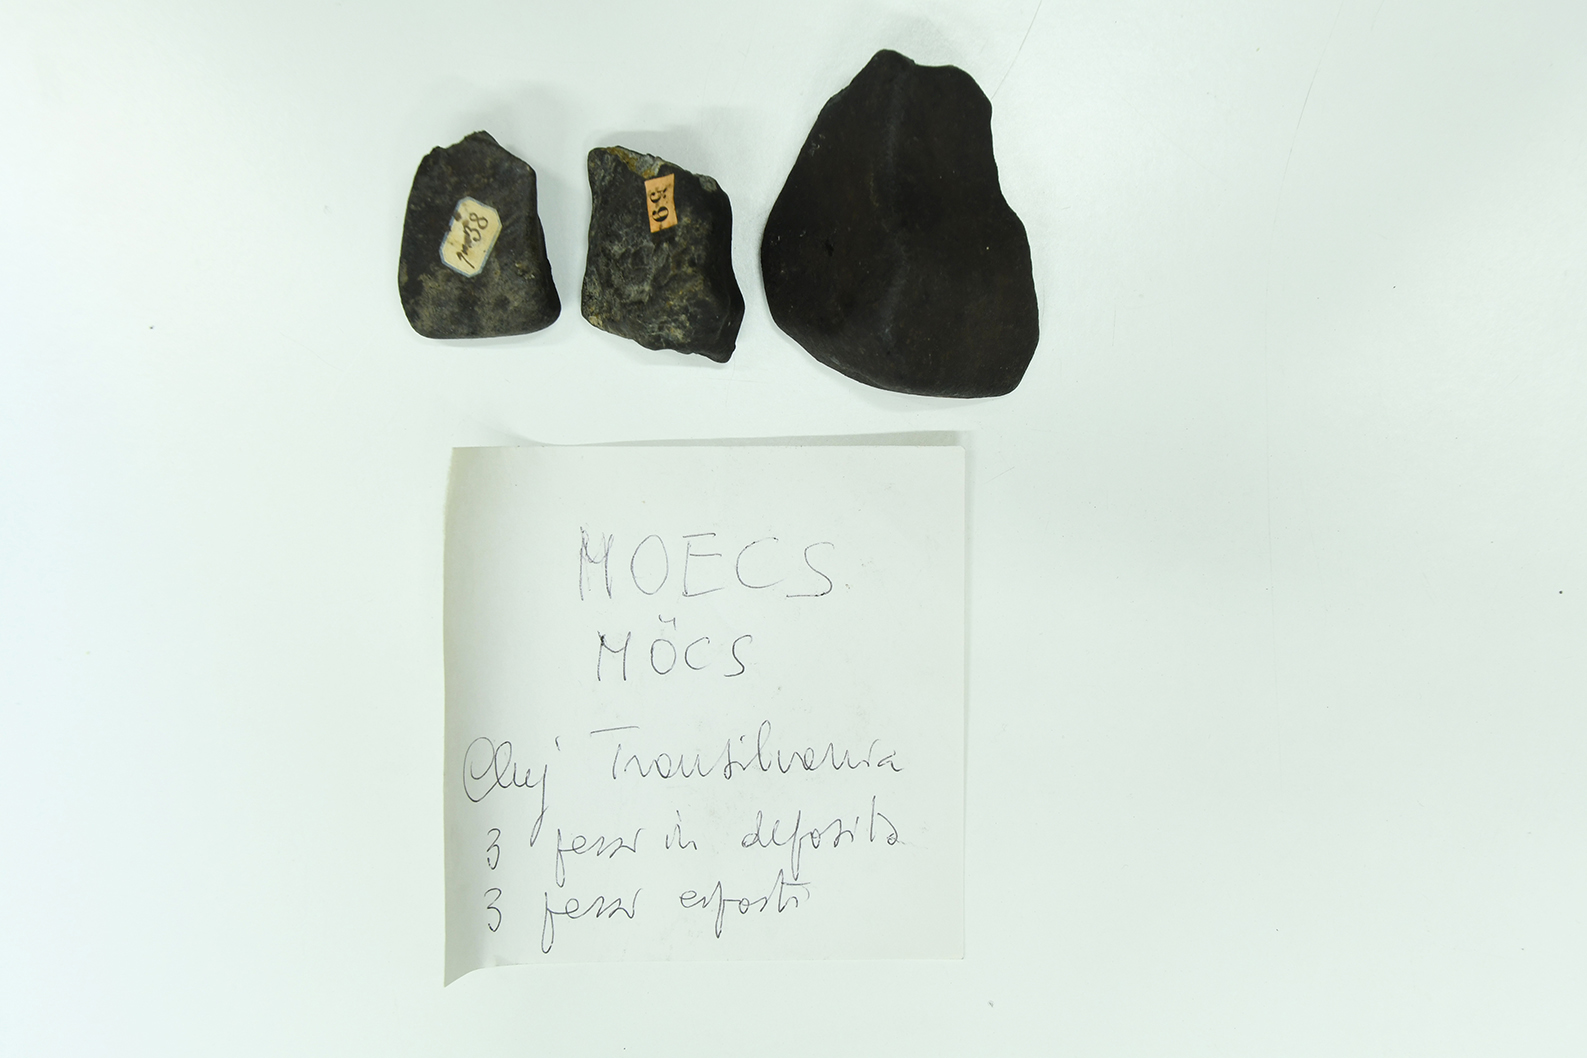 38
68
MOECS
MÖCS
Cluj Transilvania
3 pezzi in deposito
3 pezzi esposti